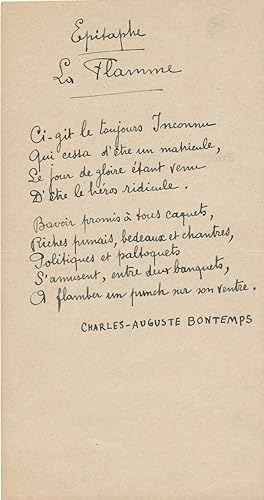 Epitaphe
La Flamme
Ci-git le toujours Inconnu
Qui cessa d'être un matricule,
Le jour de gloire étant venu
D'être le héros ridicule.
Bavoir promis à tous caquets,
Riches punais, bedeaux et chantres,
Politiques et paltoquets
S'amusent, entre deux banquets,
A flamber un punch sur son ventre.
CHARLES-AUGUSTE BONTEMPS